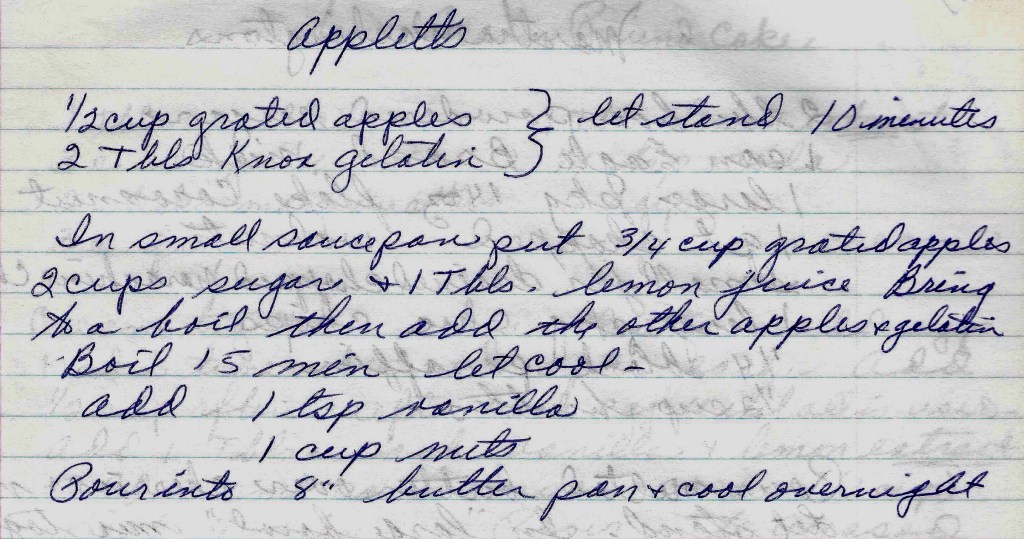 Appletts
1/2 cup grated apples } let stand 10 minutes
2 Tbls Knox gelatin }
In small saucepan put 3/4 cup grated apples
2 cups sugar + 1 Tbls. lemon juice Bring
to a boil then add the other apples + gelatin
Boil 15 min let cool -
add 1 tsp vanilla
1 cup nuts
Pour into 8" butter pan + cool overnight